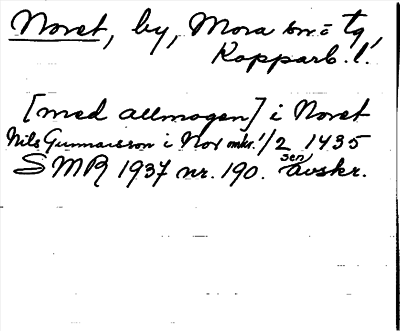 Noret, by, Mora sn = tg,
Kopparb. l.
[med allmogen] i Noret
Nils Gunnarsson i Nor mkr. 1/2 1435
SMR 1937 nr. 190. sen avskr.